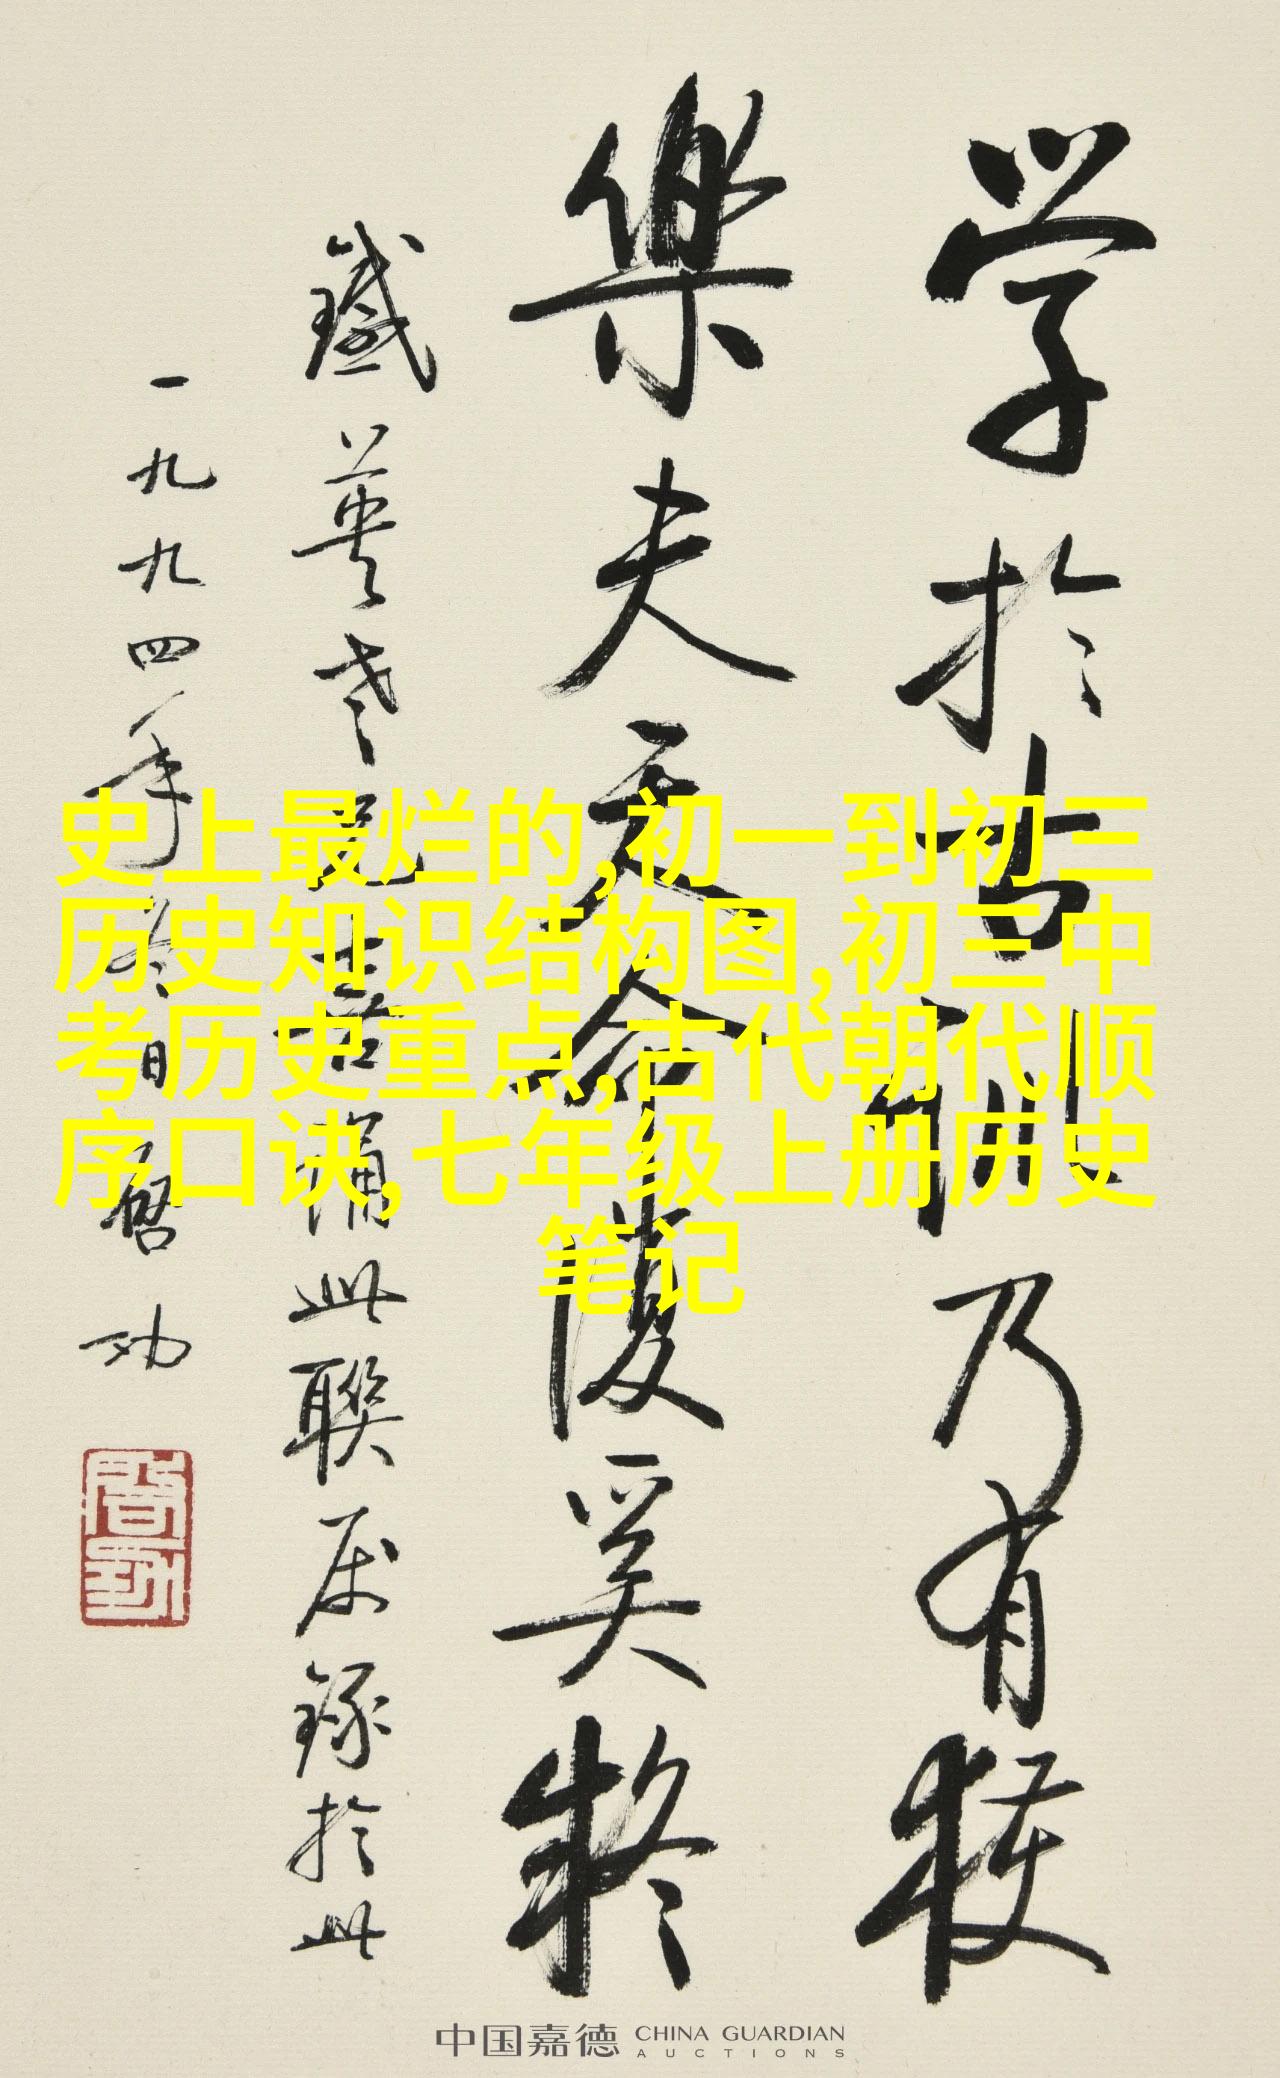 学於古训乃有获
樂夫天命復奚疑
鐵英老兄喜诵此聯属録於此
一九九四年冬日啓功
啓功
史上最烂的,初一到初三
历史知识结构图,初三中
考历史重点,古代朝代顺
序口诀,七年级上册历史
笔记
中国嘉德 CHINA GUARDIAN
AUCTIONS